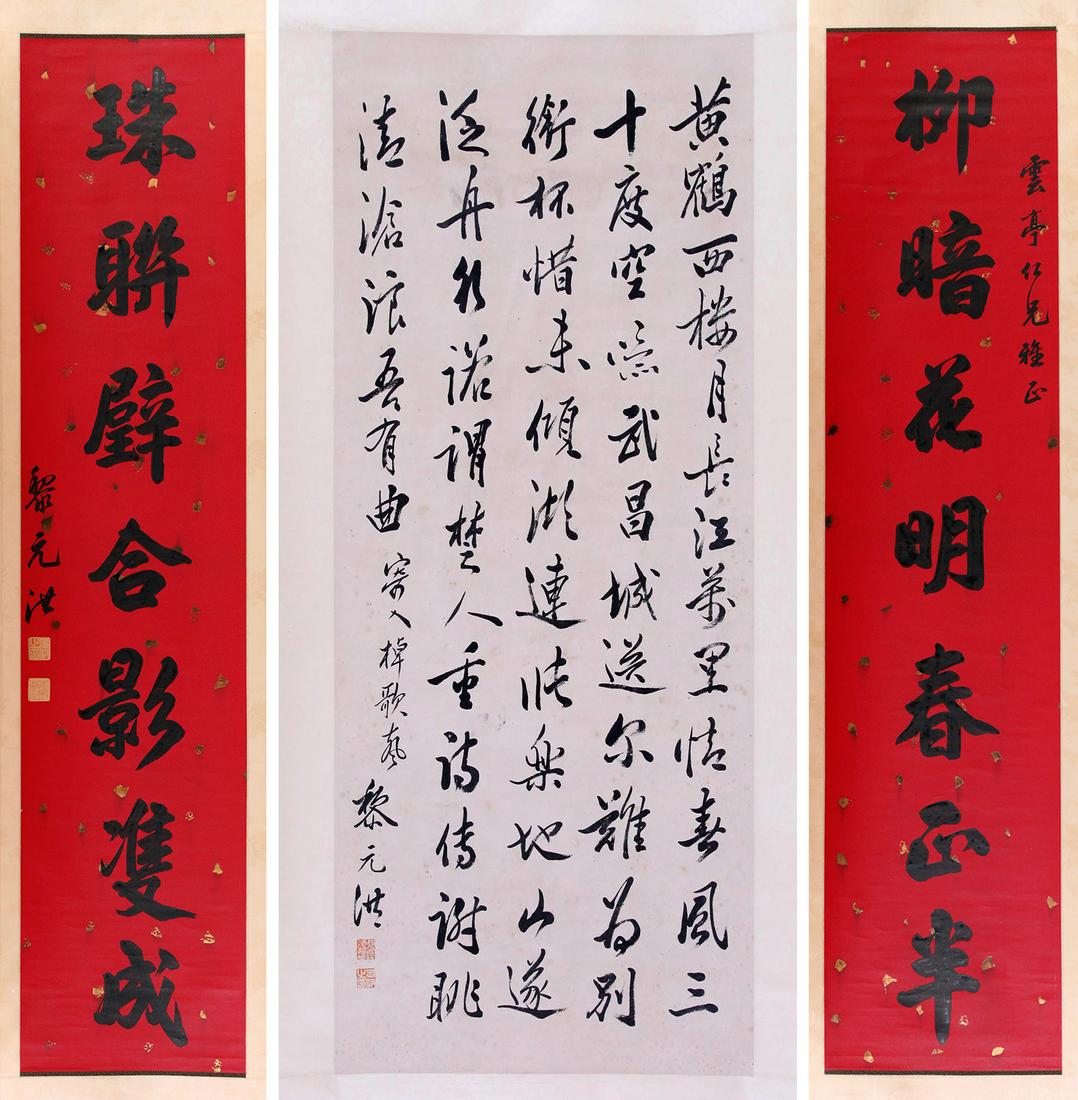 雲亭仁兄雅正
柳暗花明春正半
黄鶴西楼月長江萬里情春風三
十度空憶武昌城送尔難為別
銜杯惜未傾湖連張樂地山逐
泛舟行諾謂楚人重詩傳謝眺
清滄浪吾有曲寄入棹歌聲
黎元洪
珠聯璧合影雙成
黎元洪